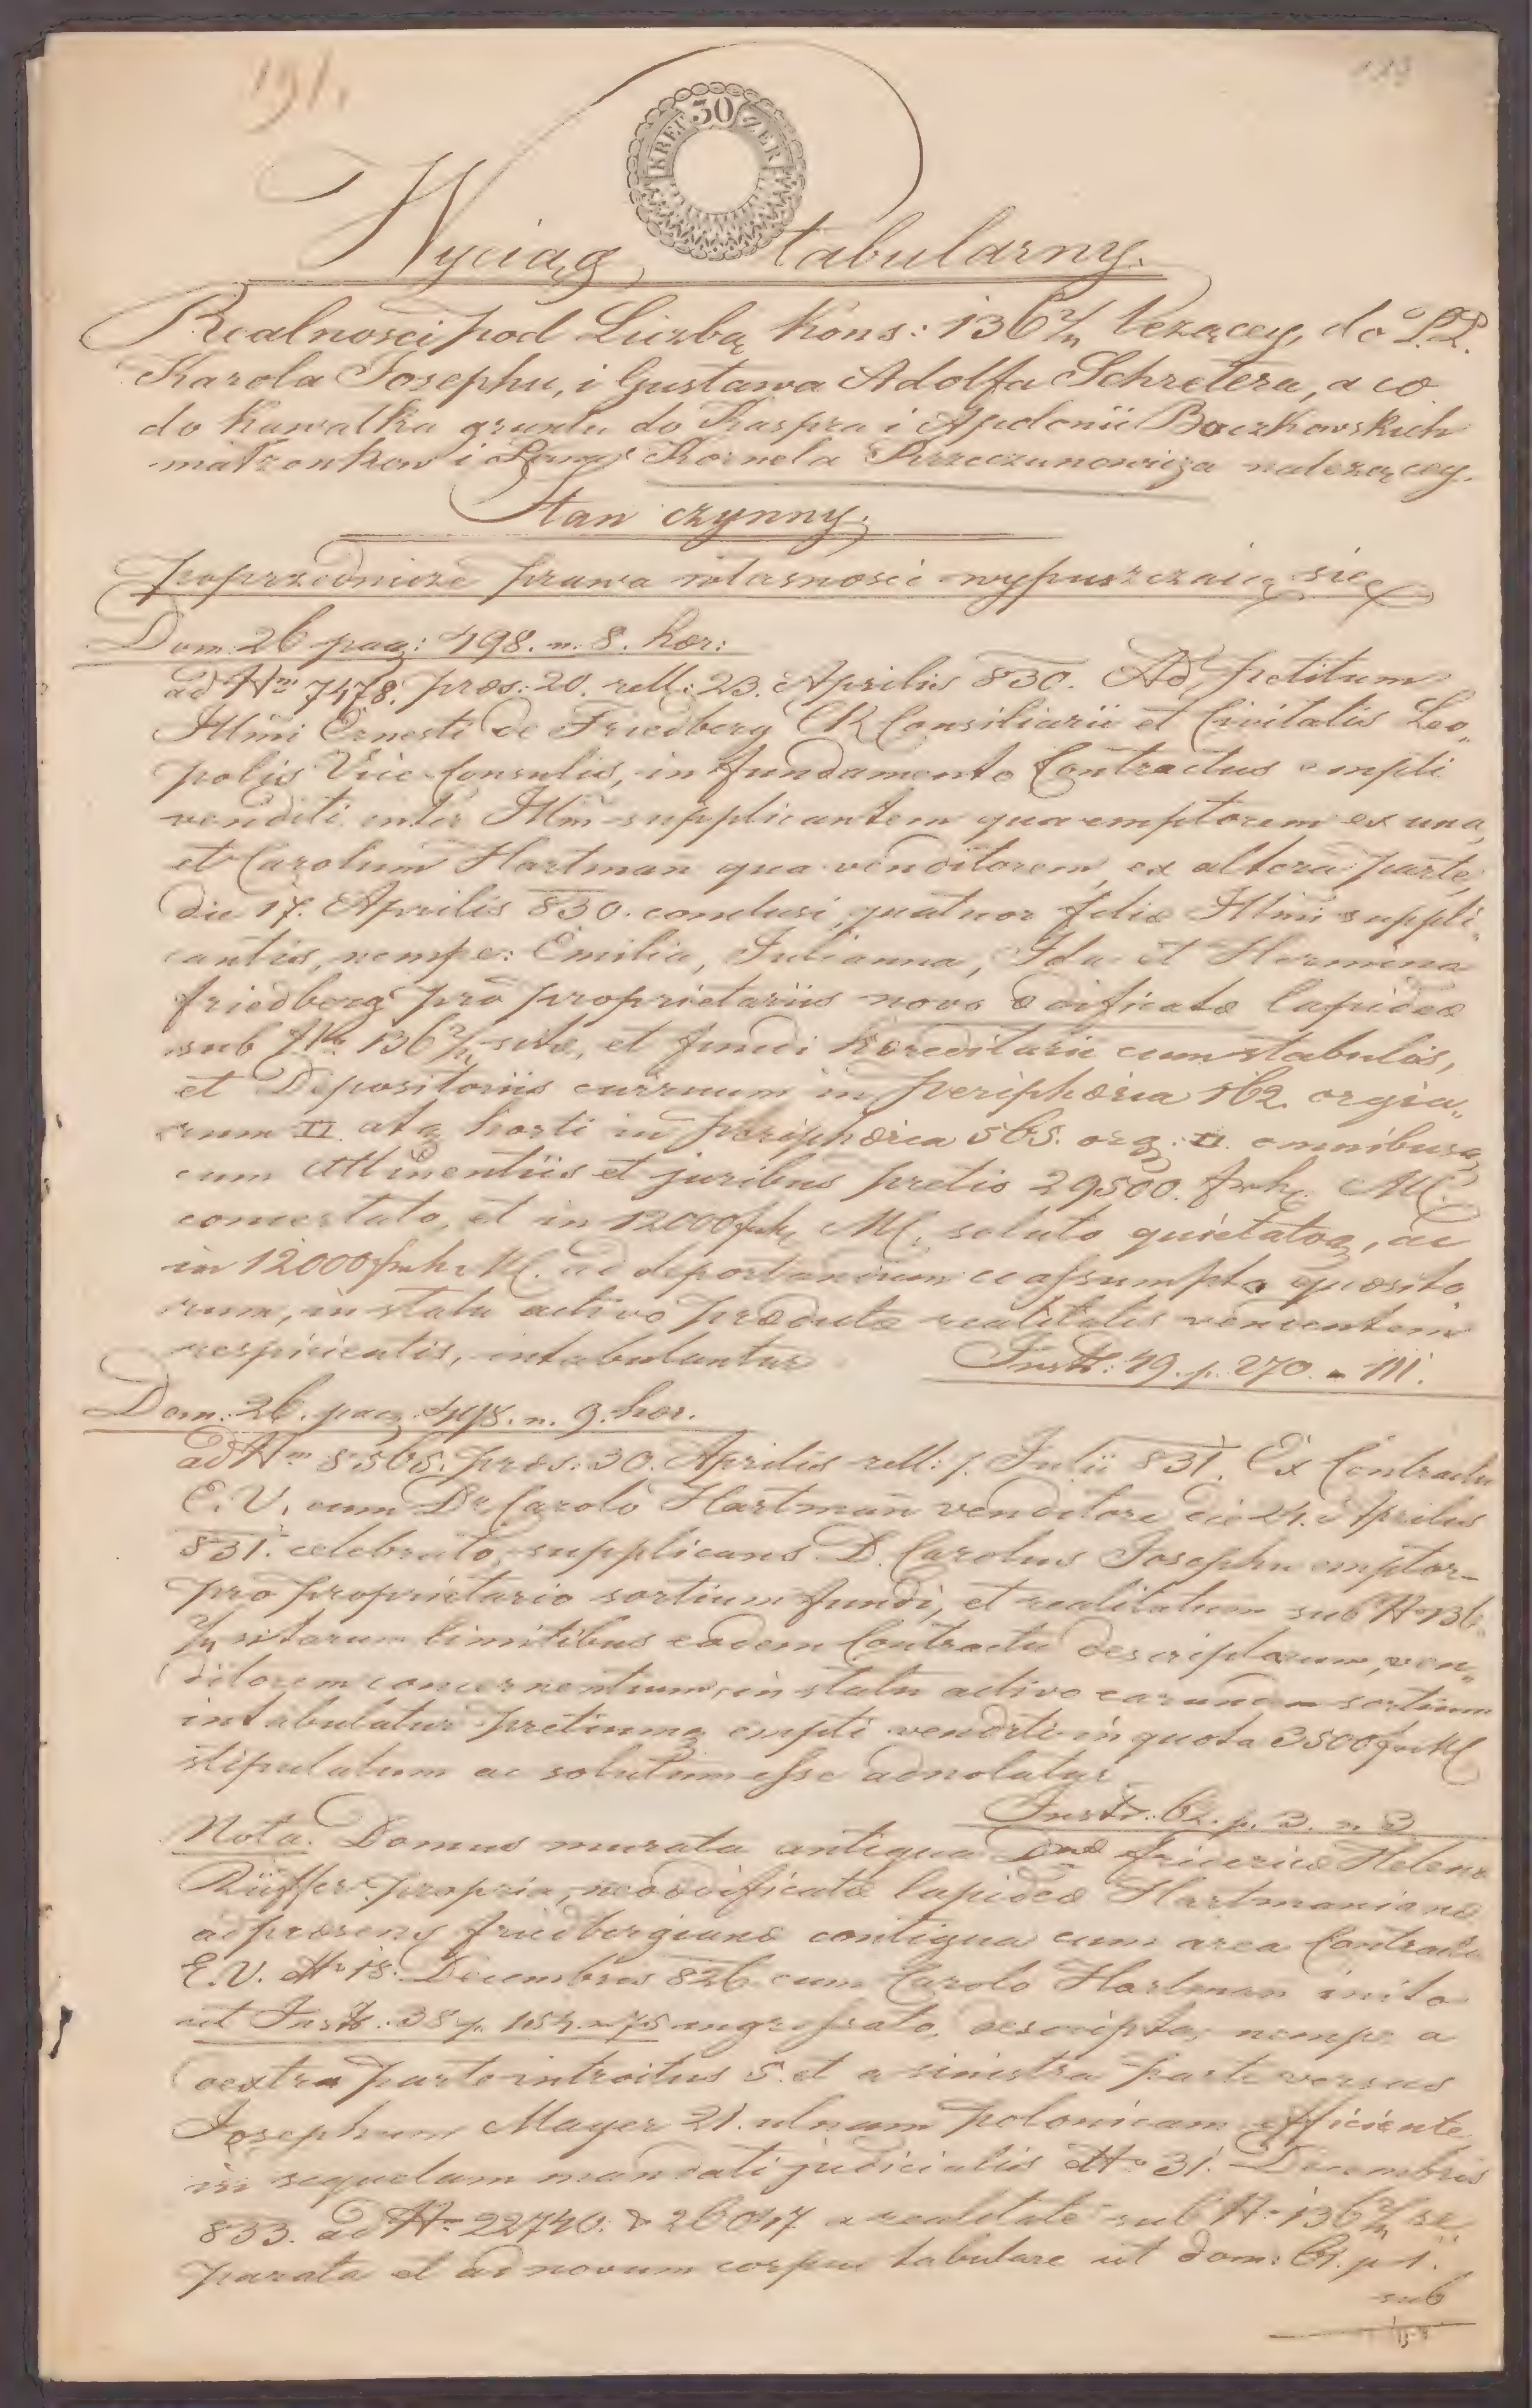 191.
30
KREUZER
Wyciąg tabularny.
Realnosci pod Liczbą Kons: 136 2/4 leżącey, do P.P.
Karola Josephu, i Gustawa Adolfa Schretera, a co
do kawałka gruntu do Kaspra i Apolonii Baczkowskich
małżonkow i Kornela Krzeczunowicza należącey.
Stan czynny.
poprzednicze prawa własności wypuszczaią się
Dom. 26 pag: 498. n. 8. hær:
ad Nrm 7478. præs: 20. rell: 23. Aprilis 830. Ad petitum
Illmi Ernesti de Friedberg CR Consiliarii et Civitatis Leo„
polis Vice Consulis, in fundamento Contractus empti
venditi inter Illm supplicantem qua emptorem ex una,
et Carolum Hartman qua venditorem, ex altera parte,
die 17. Aprilis 830. conclusi, quatuor filiæ Illmi suppli„
cantis, nempe: Emilia, Julianna, Ida et Hermina
Friedberg pro proprietariis nove ædificatæ lapideæ
sub Nro 136 2/4 sitæ, et fundi hæreditarii cum stabulis,
et Depositoriis curruum in peripheria 162 orgia„
rum □ atq horti in peripheria 565. org: □. omnibusq
cum attinentiis et juribus pretio 29500. frh. MC.
concertato, et in 12000 frh MC. soluto quietatoq, ac
in 12000 frh. MC. ad deportandum assumpto quæsito
rum, in statu activo prædictæ realitatis venientem
respicientis, intabulantur
Instr: 49. p. 270. n. 111.
Dom. 26. pag. 498. n. 9. hær.
ad Nrm 8565. præs: 30. Aprilis rell: 1. Julii 831. Ex Contractu
E.V. cum Dr Carolo Hartman venditore die 24. Aprilis
831. celebrato, supplicans D. Carolus Josephu emptor
pro proprietario sortium fundi, et realitatum sub Nr 136
2/4 sitarum limitibus eodem Contractu descriptarum, ven„
ditorem concernentium, in statu activo earundem sortium
intabulatur pretiumq empti venditi in quota 3500 fr MC
stipulatum ac solutum esse adnotatur
Instr. 62. p. 3. n. 3
Nota. Domus murata antiqua Dnæ Fridericæ Helenæ
Rüffer propria, neoædificatæ lapideæ Hartmanianæ
ad præsens Friedbergianæ contigua cum area Contractu
E.V. ddto 18. Decembris 826 cum Carolo Hartman inito
ut Instr: 38 p. 154 n. 75 ingrossato, descripta, nempe a
dextra parte introitus 5. et a sinistra parte versus
Josephum Mayer 21. ulnam polonicam efficiente,
in sequelam mandati judicialis ddto 31. Decembris
833. ad Nrm 22740. & 26047 a realitate sub Nr 136 2/4 se„
parata et ad novum corpus tabulare ut dom: 61. p 1.
sub